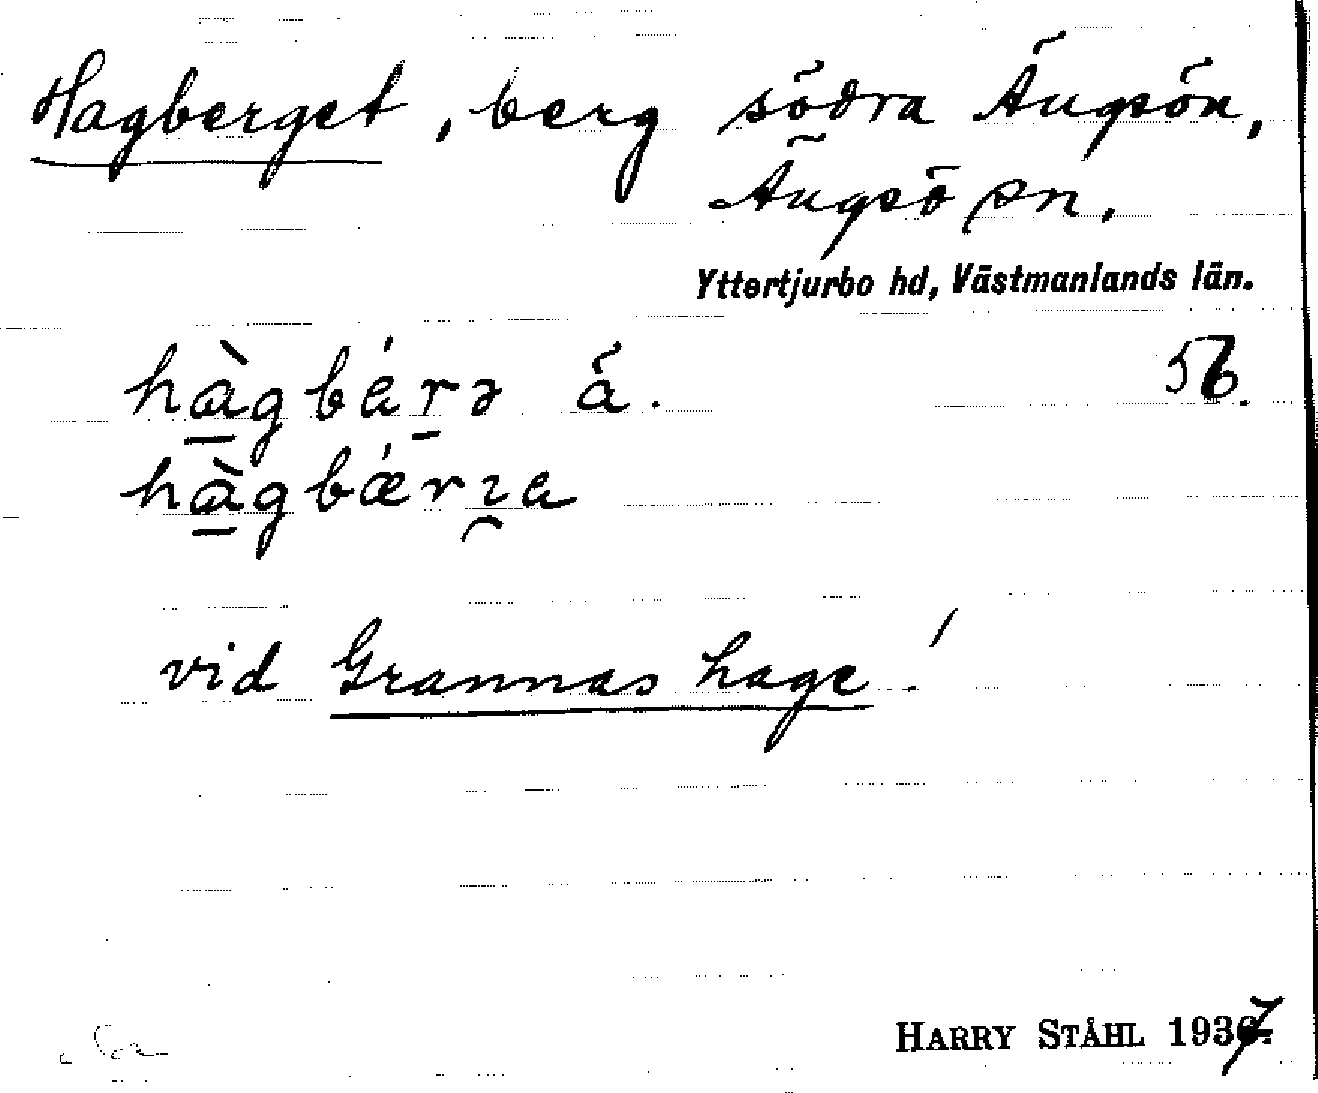 Hagberget, berg södra Ängsön,
Ängsö sn.
Yttertjurbo hd, Västmanlands län.
hàgbá́rə á.
hàgbǽrɪa
vid Grannas hage!
HARRY STÅHL 1937